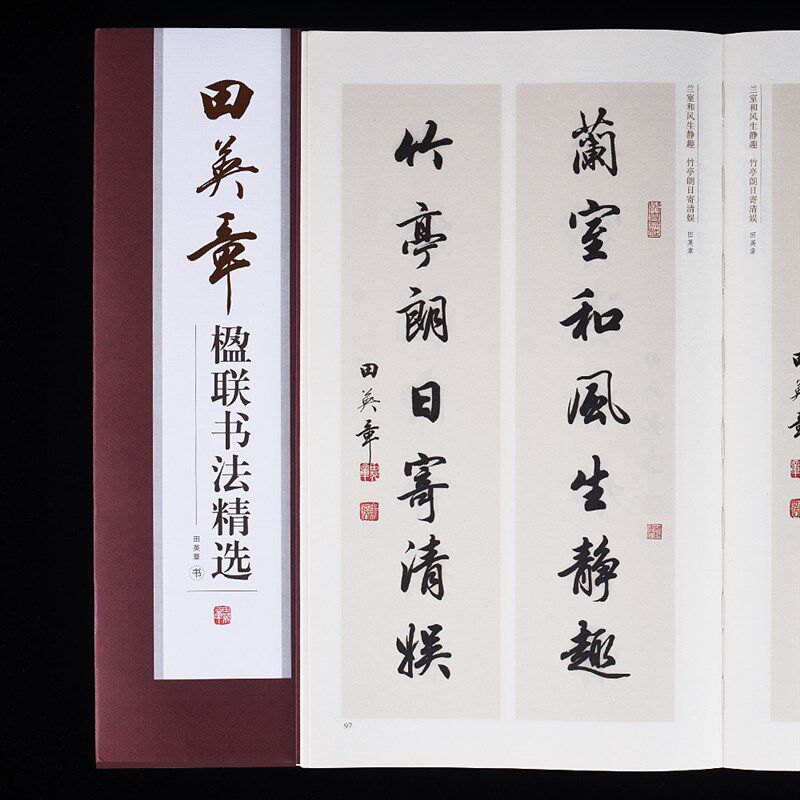 田英章
楹联书法精选
田英章 书
蘭室和風生静趣
竹亭朗日寄清娱
田英章
兰室和风生静趣 竹亭朗日寄清娱 田英章
97
兰室和风生静趣 竹亭朗日寄清娱 田英章
田英章